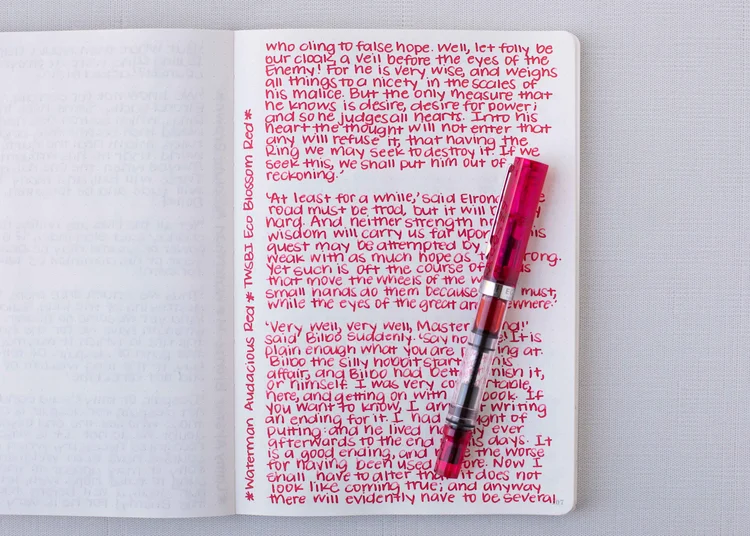 who cling to false hope. Well, let folly be
our cloak, a veil before the eyes of the
Enemy! For he is very wise, and weighs
all things to a nicety in the scales of
his malice. But the only measure that
he knows is desire, desire for power;
and so he judges all hearts. Into his
heart the thought will not enter that
any will refuse it, that having the
Ring we may seek to destroy it. If we
seek this, we shall put him out of
reckoning.'
'At least for a while,' said Elron
road must be trod, but it will
hard. And neither strength n
wisdom will carry us far upon his
quest may be attempted by
weak with as much hope as trong.
Yet such is oft the course of s
that move the wheels of the w
small hands do them because must,
while the eyes of the great ar ewhere.'
'Very well, very well, Master nd!'
said Bilbo suddenly. 'Say no It is
plain enough what you are ng at.
Bilbo the silly hobbit start his
affair, and Bilbo had bett nish it,
or himself. I was very co rtable
here, and getting on with book. If
you want to know, I am writing
an ending for it. I had ght of
putting: and he lived ever
afterwards to the end is days. It
is a good ending, and the worse
for having been used ore. Now I
shall have to alter that it does not
look like coming true; and anyway
there will evidently have to be several
*Waterman Audacious Red * TWSBI Eco Blossom Red *